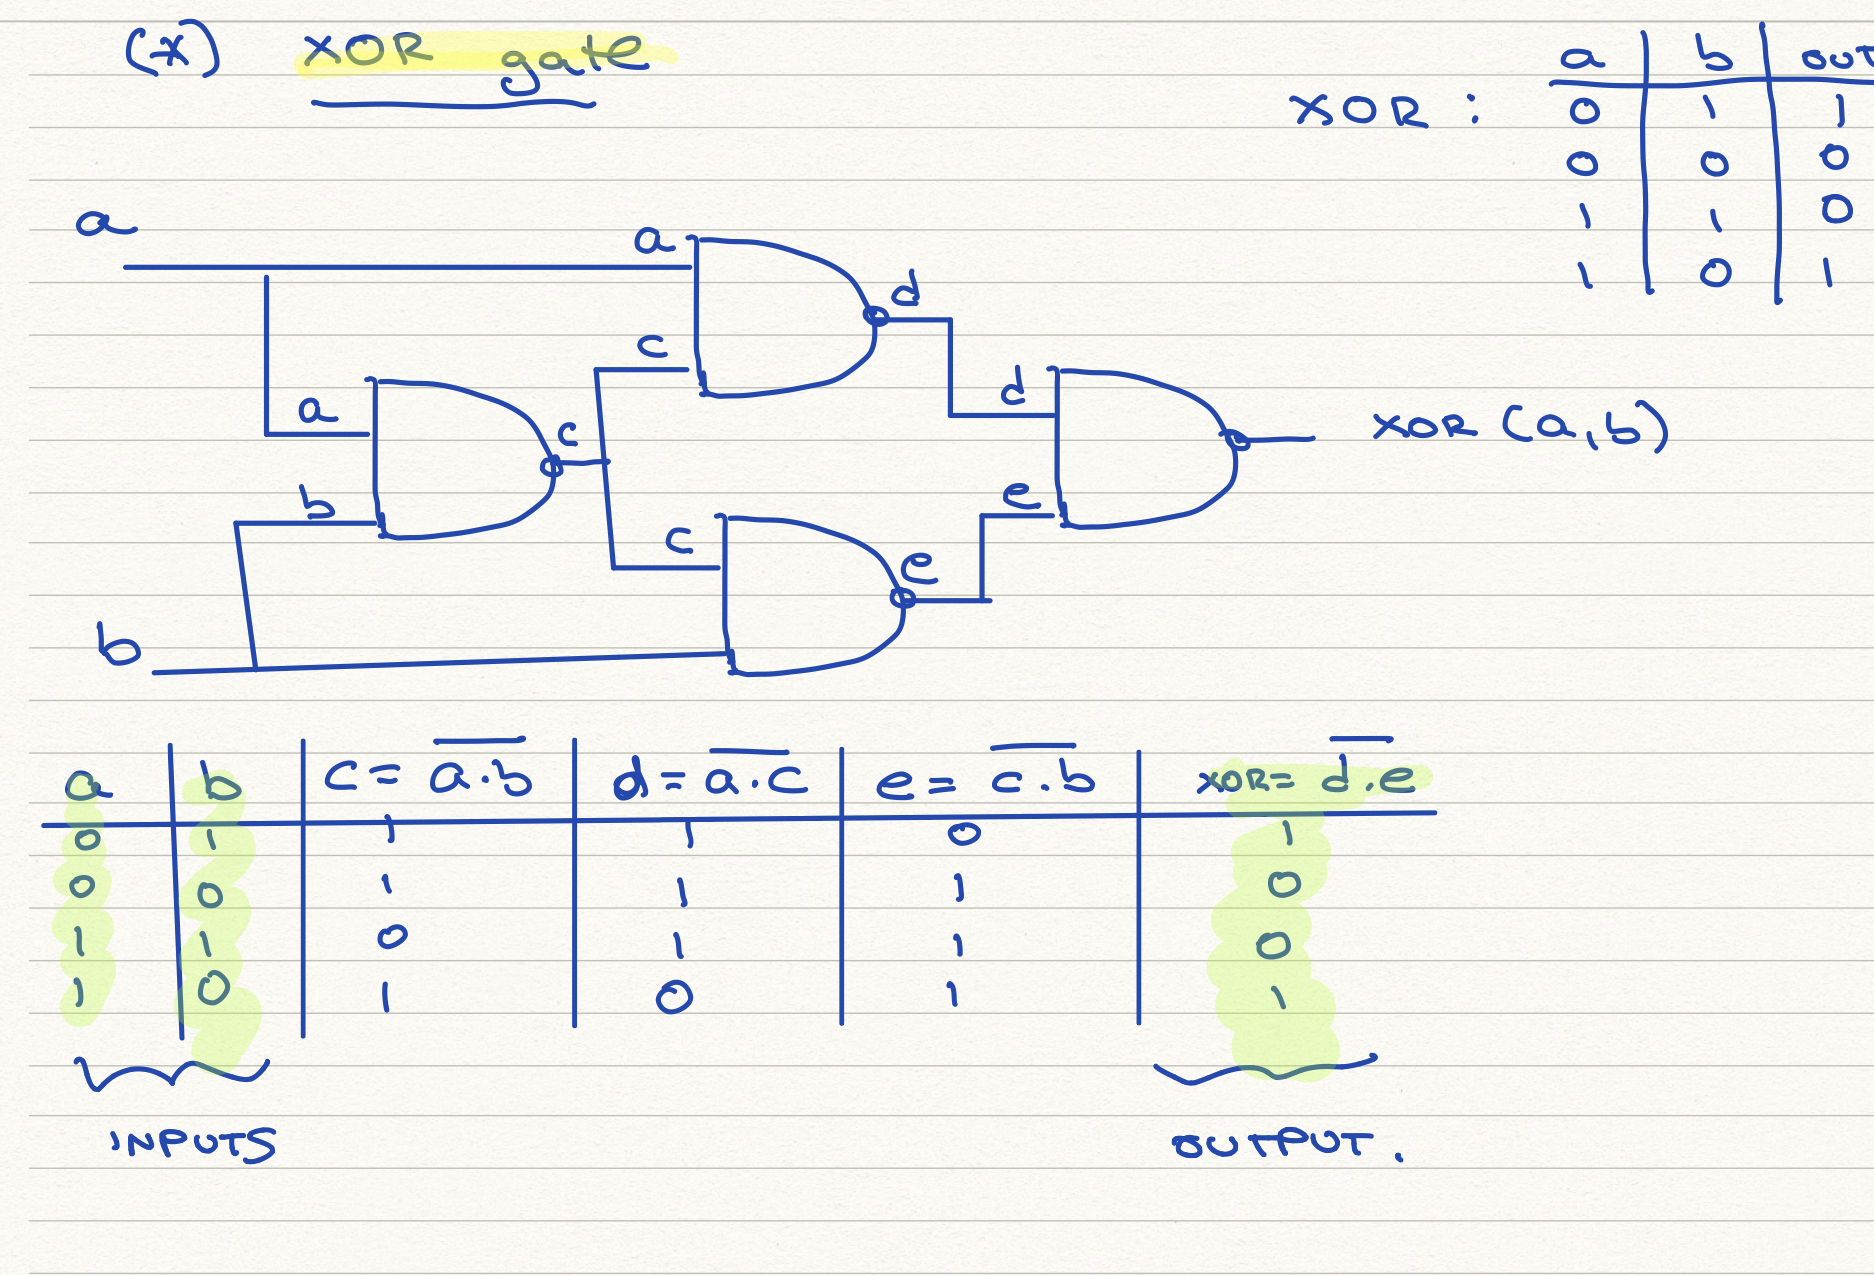 (*) XOR gate
a | b | out
XOR : 0 | 1 | 1
0 | 0 | 0
1 | 1 | 0
1 | 0 | 1
a
a
d
c
d
a
c
XOR (a,b)
b
e
c
e
b
a | b | c = a.b | d = a.c | e = c.b | XOR = d.e
0 | 1 | 1 | 1 | 0 | 1
0 | 0 | 1 | 1 | 1 | 0
1 | 1 | 0 | 1 | 1 | 0
1 | 0 | 1 | 0 | 1 | 1
INPUTS OUTPUT.